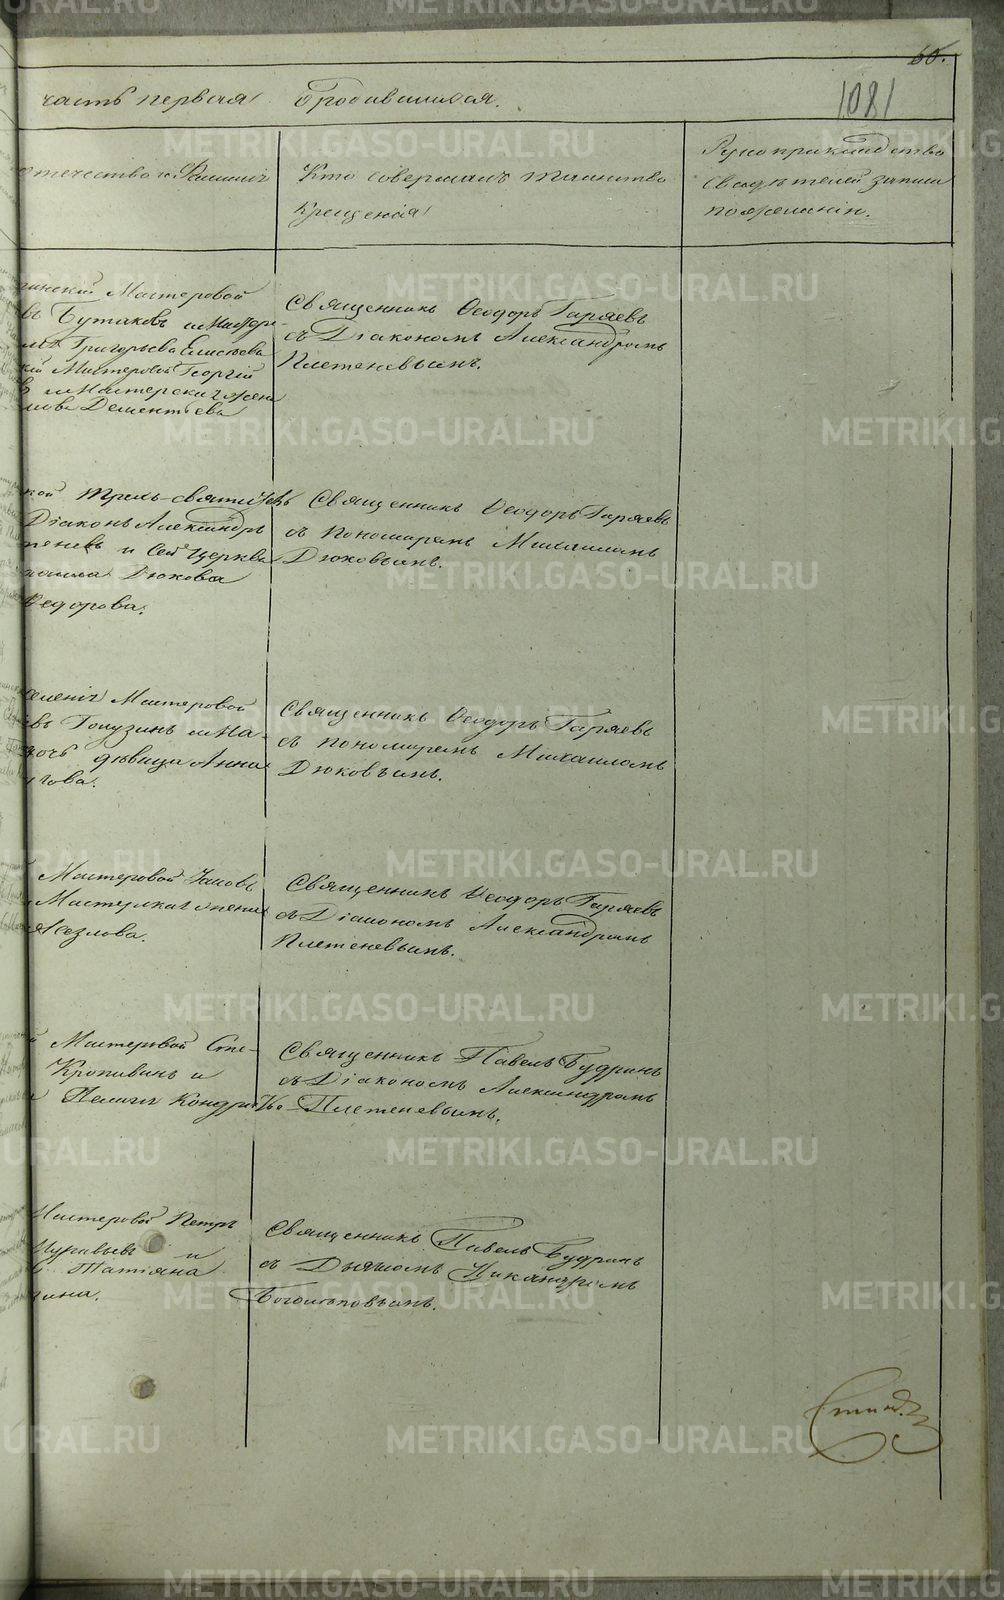 60.
1081
часть первая о родившихся.
отечество и Фамилія
Кто совершалъ таинство
крещенія
Рукоприкладство
свидѣтелей записи
по желанію.
Мастеровой
въ Бутаковъ и
Григорьева Елисѣева
Мастеровой Георгій
и Мастерская жена
Дементьева
Священникъ Ѳеодоръ Гаряевъ
съ Діакономъ Александромъ
Плетеневымъ.
кой Трехъ-святительск
Діаконъ Александръ
теневъ и сей церкви
Дюкова
Ѳедорова.
Священникъ Ѳеодоръ Гаряевъ
съ пономаремъ Михаиломъ
Дюковымъ.
селенія Мастеровой
въ Голузинъ и На-
дочь дѣвица Анна
гова.
Священникъ Ѳеодоръ Гаряевъ
съ пономаремъ Михаиломъ
Дюковымъ.
Мастеровой Іаковъ
Мастерская жена
Козлова.
Священникъ Ѳеодоръ Гаряевъ
съ Діакономъ Александромъ
Плетеневымъ.
й Мастеровой Сте-
Кропивинъ и
Пелагія Кондратье
Священникъ Павелъ Будринъ
съ Діакономъ Александромъ
Плетеневымъ.
Мастеровой Петръ
Муравьевъ и
Татіана
ина.
Священникъ Павелъ Будринъ
съ Дьячкомъ Никандромъ
Боголѣповымъ.
METRIKI.GASO-URAL.RU